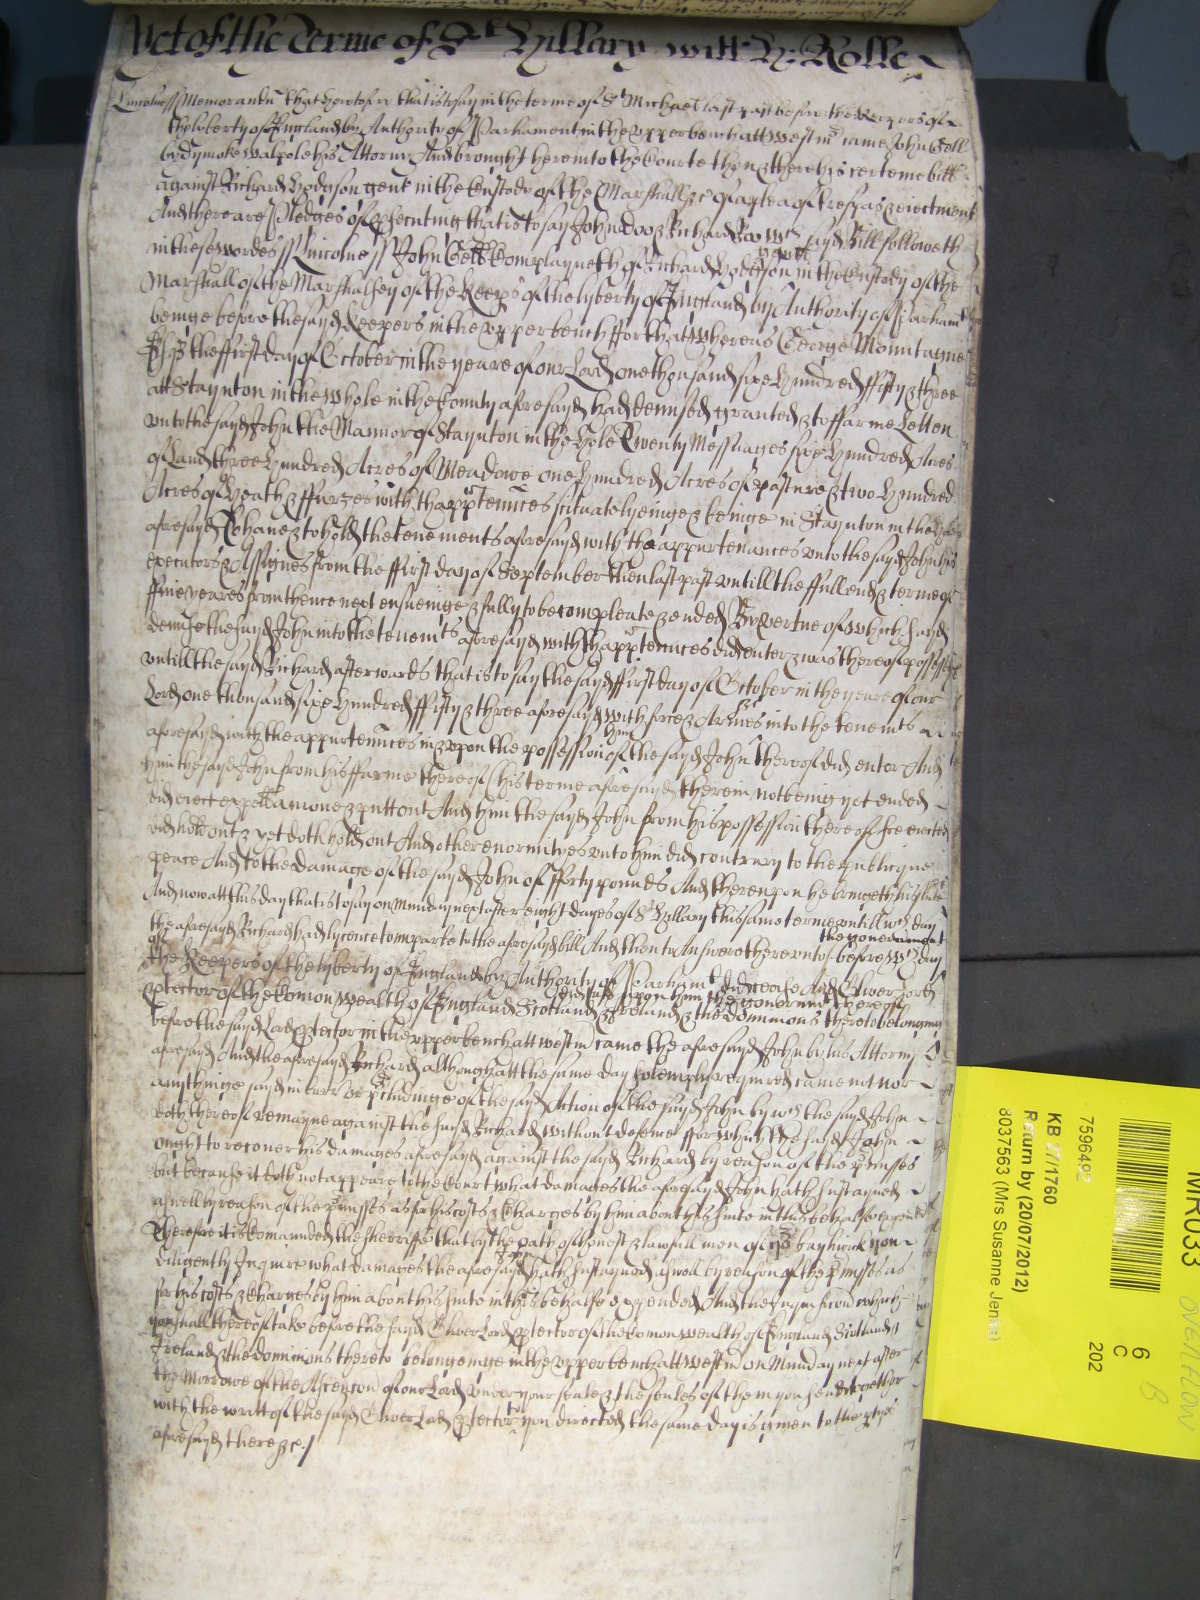 Yet of the Terme of St Hillary witt H: Rolle
Lincolne ss Memorand that heretofore that is to say in the terme of St Michael last past before the Keepers of
the lyberty of England by Authority of Parliament in the upper bench att westm came John Cell
by dymoke walpole his Attorny And brought here into the Courte then & there his certeine bill
against Richard Hodgson gent in the Custody of the Marshall &c of a plea of tres'pas & eiectment
And there are Pledges of p'secuting that is to say John doo & Richard Roo wch sayd Bill followeth
in these wordes ss Lincolne ss John Cell Complayneth of Richard Hodgson gent in the Custody of the
Marshall of the Marshalsey of the Keep's of the lyberty of England by Authority of Parliam't
beinge before the sayd Keepers in the upper bench ffor that whereas George Mountague
Esq the ffirst day of October in the yeare of our Lord one thousand sixe hundred ffifty & three
att Staynton in the Whole in the County aforesayd had demised granted & to ffarme Letten
unto the sayd John the Mannor of Staynton in the Hole Twenty Messuages sixe hundred Acres
of Land three hundred Acres of Meadowe one hundred Acres of pasture & two hundred
Acres of Heath & ffurzes with thapp'tennces scituate lyeinge & beinge in Staynton in the Hole
aforesayd To have & to hold the tenements aforesayd with thappurtenances unto the sayd John his
executors & Assignes from the ffirst day of September then last past untill the ffull end & terme of
ffive yeares from thence next ensueinge & fully to be compleate & ended By vertue of which sayd
demise the sayd John into the tenem'ts aforesayd with thapp'tennces did enter & was thereof possessed
untill the sayd Richard afterwards that is to say the sayd ffirst day of October in the yeare of our
Lord one thousand sixe hundred ffifty & three aforesayd with force & Armes &c into the tenem'ts
aforesayd with the appurtennces in & upon the possession of him the sayd John thereof did enter And
him the sayd John from his ffarme thereof (his terme aforesayd therein not being yet ended
did eiect expell amove & putt out And him the sayd John from his possession thereof soe eiected
did hold out & yet doth hold out And other enormityes unto him did contrary to the publique
peace And to the damage of the sayd John of fforty pounds And thereupon he bringeth his suite
And now att this day that is to say on Munday next after eight dayes of St Hillary this same terme untill wch day
the aforesayd Richard had lycence to imparle to the aforesayd bill And then to Answere thereunto &c before wch day the government
of the Keepers of the lyberty of England by Authority of Parliam't did cease And Oliver Lord
p'tector of the Comon wealth of England Scotland & Ireland & the dominions thereto belonging did take upon him the governm't thereof
before the sayd Lord p'tector in the upper bench att westm came the aforesayd John by his Attorny
aforesayd And the aforesayd Richard although att the same day solemply required came not nor
anythinge sayd in barr or p'cludinge of the sayd Action of the sayd John by wch the sayd John
doth thereof remayne against the sayd Richard without defence ffor which the sayd John
ought to recover his damages aforesayd against the sayd Richard by reason of the p'misses
but because it doth not appeare to the Court what damages the aforesayd John hath sustayned
aswell by reason of the p'misses as for his costs & charges by him about his suite in this behalfe expended
Therefore it is comaunded the sherriffe that by the oath of honest & lawfull men of his baylywick you
diligently Inquire what damages the aforesayd John hath sustayned aswell by reason of the p'misses as
for his costs & charges by him about his suite in this behalfe expended And the Inquisicion which
you shall thereof take before the sayd Oliver Lord p'tector of the Comon wealth of England Scotland &
Ireland & the dominions thereto belongeinge in the upper bench att westm on Munday next after
the Morrowe of the Ascencon of our Lord under your seale & the seales of them you send together
with the writt of the sayd Oliver Lord p'tector to you directed the same day is given to the p'tyes
aforesayd there &c./
MR033
OVERFLOW
B
6
C
202
7596492
KB 27/1760
Return by (20/07/2012)
8037563 (Mrs Susanne Jen